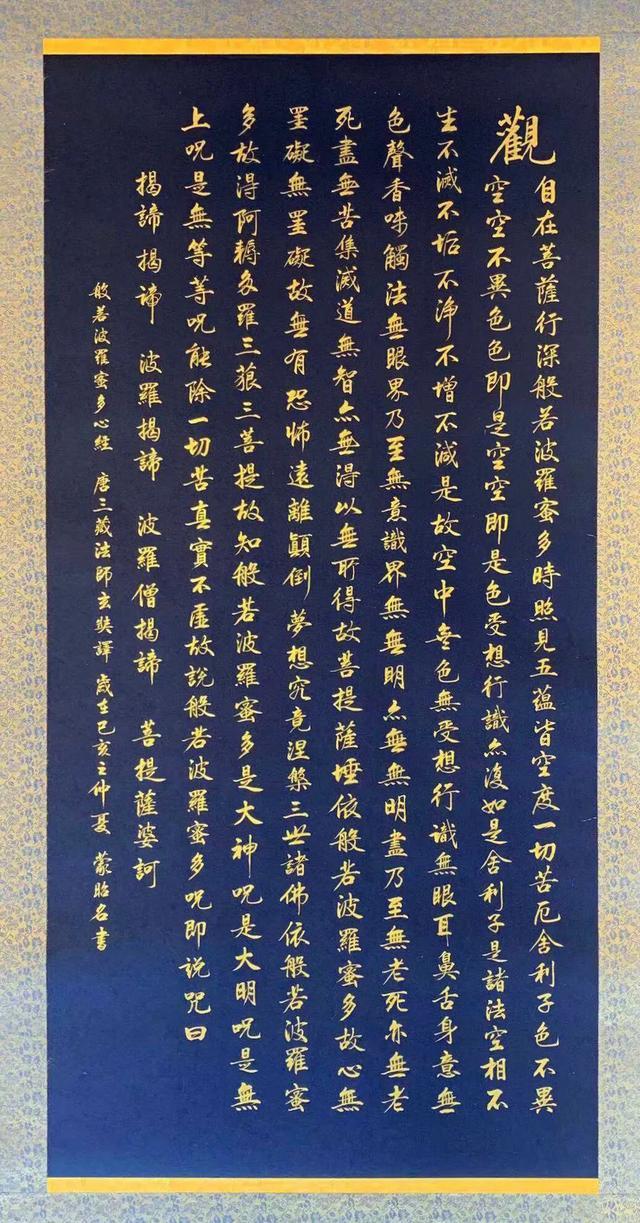 觀自在菩薩行深般若波羅蜜多時照見五蘊皆空度一切苦厄舍利子色不異
空空不異色色即是空空即是色受想行識亦復如是舍利子是諸法空相不
生不滅不垢不淨不增不減是故空中無色無受想行識無眼耳鼻舌身意無
色聲香味觸法無眼界乃至無意識界無無明亦無無明盡乃至無老死亦無老
死盡無苦集滅道無智亦無得以無所得故菩提薩埵依般若波羅蜜多故心無
罣礙無罣礙故無有恐怖遠離顛倒夢想究竟涅槃三世諸佛依般若波羅蜜
多故得阿耨多羅三藐三菩提故知般若波羅蜜多是大神呪是大明呪是無
上呪是無等等呪能除一切苦真實不虛故說般若波羅蜜多呪即說咒曰
揭諦揭諦 波羅揭諦 波羅僧揭諦 菩提薩婆訶
般若波羅蜜多心經 唐三藏法師玄奘譯 歲在己亥之仲夏 蒙昭名書